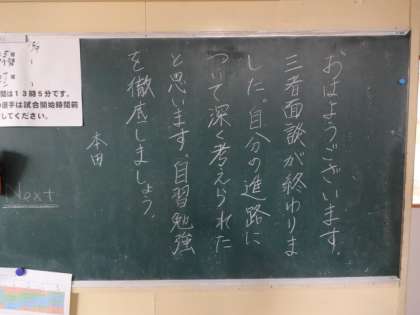 おはようございます。
三者面談が終わりま
した。自分の進路に
ついて深く考えられた
と思います。自習勉強
を徹底しましょう。
本田
間は13時5分です。
選手は試合開始時間前
してください。
Next